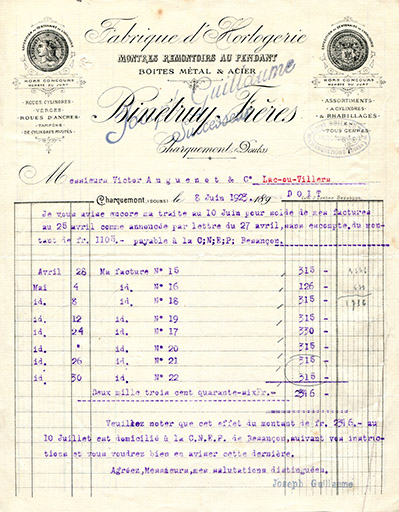 Fabrique d'Horlogerie
MONTRES REMONTOIRS AU PENDANT
BOITES MÉTAL & ACIER
HORS CONCOURS
MEMBRE DU JURY
HORS CONCOURS
MEMBRE DU JURY
Joseph Guillaume
Binétruy Frères
Successeur
Charquemont (Doubs)
ROUES CYLINDRES
VERGES
ROUES D'ANCRES
TAMPONS
DE CYLINDRES RIVOTÉS
ASSORTIMENTS
A CYLINDRES
& RHABILLAGES
EN
TOUS GENRES
Messieurs Victor Anguenet & Cº Lac-ou-Villers
Charquemont (DOUBS) le 8 Juin 1923 189 DOIT
Je vous avise encore ma traite au 10 Juin pour solde de mes factures
au 25 avril comme annoncée par lettre du 27 avril, sans escompte, du mon-
tant de fr. 1105.- payable à la C;N;E;P; Besançon.
Avril 28 Ma facture Nº 15 315 -
Mai 4 id. Nº 16 126 -
id. 8 id. Nº 18 315 -
id. 12 id. Nº 19 315 -
id. 24 id. Nº 17 330 -
id. " id. Nº 20 315 -
id. 26 id. Nº 21 315 -
id. 30 id. Nº 22 315 -
Deux mille trois cent quarante-six Fr.- 2346 -
Veuillez noter que cet effet du montant de fr. 2346.- au
10 Juillet est domicilié à la C.N.E.P. de Besançon, suivant vos instruc-
tions et vous voudrez bien en aviser cette dernière.
Agréez, Messieurs, mes salutations distinguées.
Joseph Guillaume